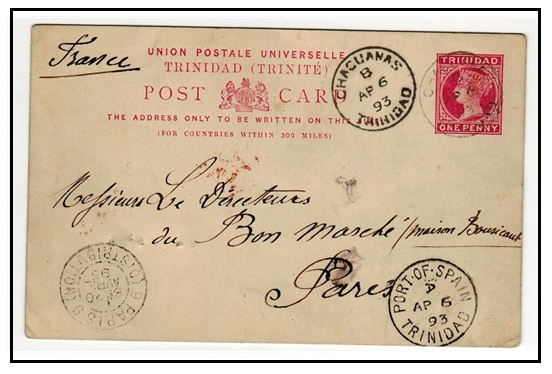 France
UNION POSTALE UNIVERSELLE
TRINIDAD (TRINITÉ)
POST CARD
THE ADDRESS ONLY TO BE WRITTEN ON THIS
(FOR COUNTRIES WITHIN 300 MILES)
CHAGUANAS
B
AP 6
93
TRINIDAD
TRINIDAD
ONE PENNY
Messieurs Le Directeurs
du Bon Marché / maison Bousicaut
Paris
PORT-OF-SPAIN
A
AP 6
93
TRINIDAD
PARIS 9
20
AVRIL
93
(DISTRIBUTION)